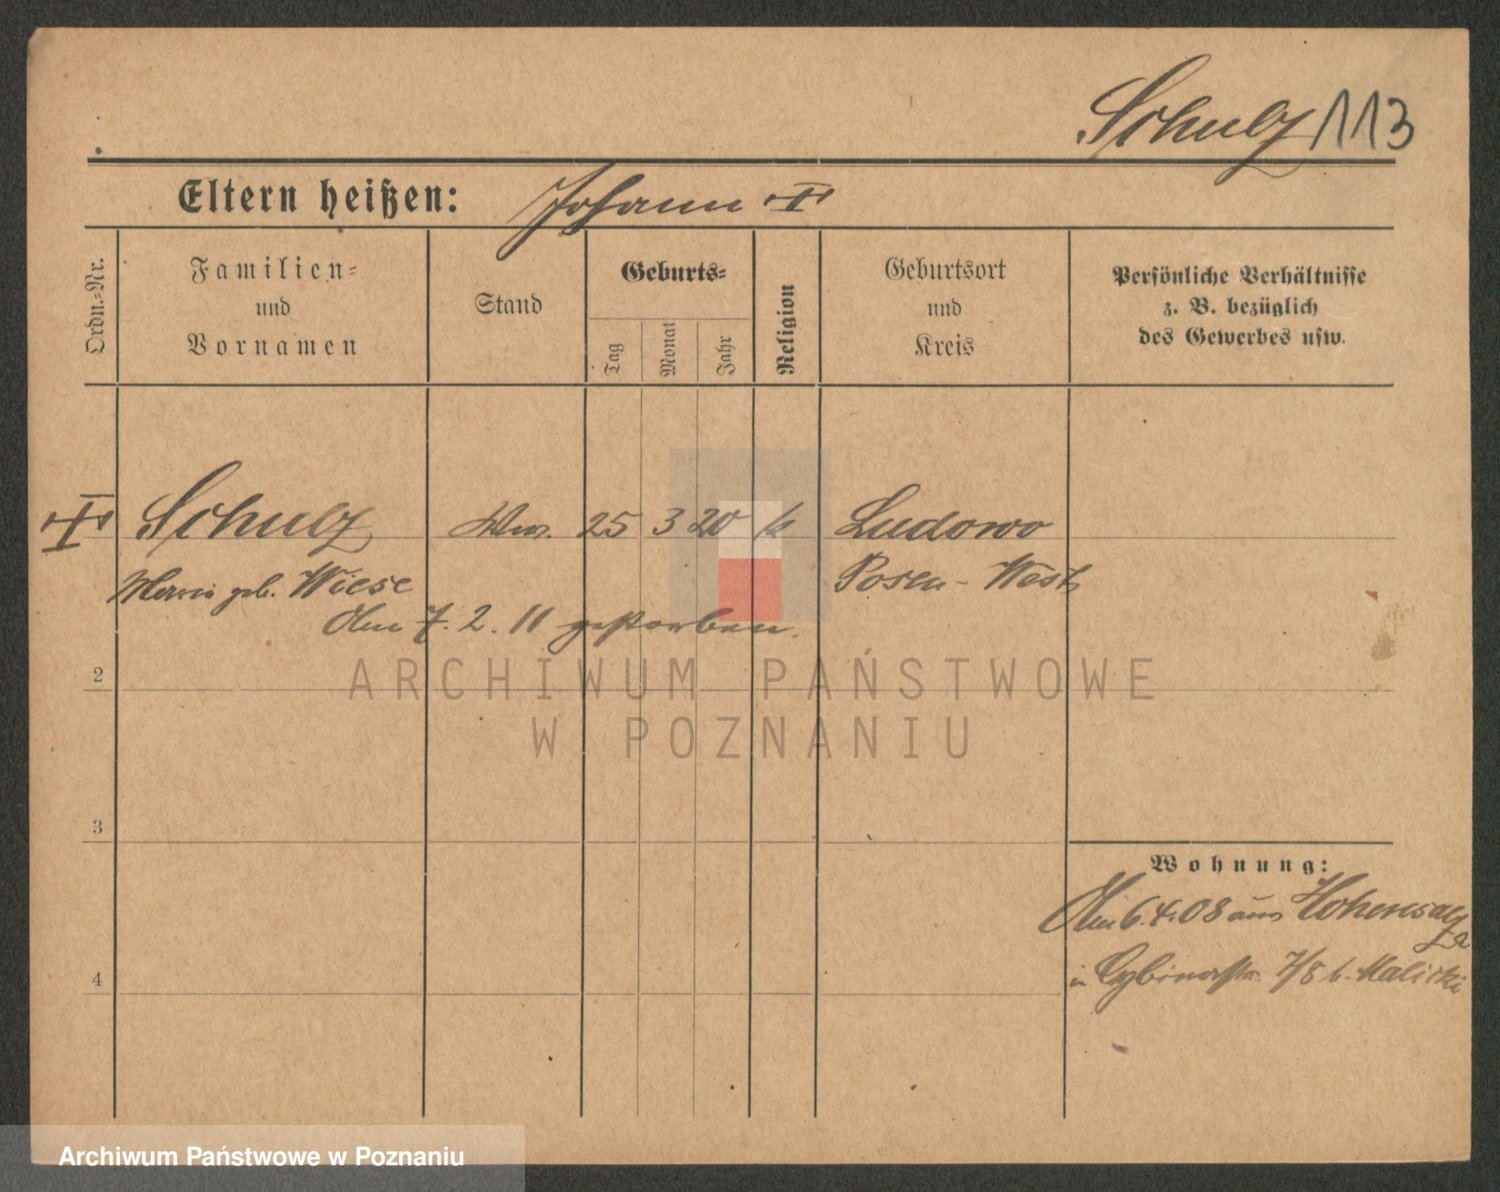 Schulz 113
Eltern heißen: Johann
Ordn.-Nr.
Familien-
und
Vornamen
Stand
Geburts-
Tag
Monat
Jahr
Religion
Geburtsort
und
Kreis
Persönliche Verhältnisse
z. B. bezüglich
des Gewerbes usw.
Schulz Ww. 25 3 20 k Ludowo
geb. Wiese Posen-West
Am 7. 2. 11 gestorben.
2
3
4
Wohnung:
Am 6.4.08 aus Hohensalza
in Cybinastr. 7/8 b. Malicki
ARCHIWUM PAŃSTWOWE
W POZNANIU
Archiwum Państwowe w Poznaniu